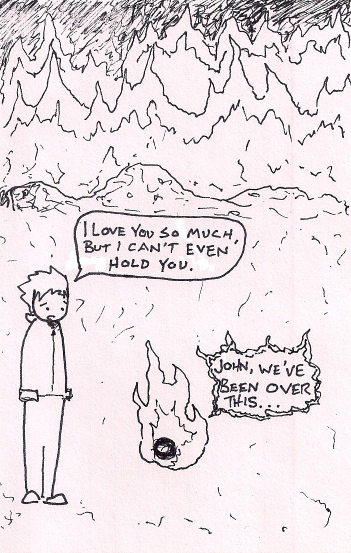 I LOVE YOU SO MUCH,
BUT I CAN'T EVEN
HOLD YOU.
JOHN, WE'VE
BEEN OVER
THIS...